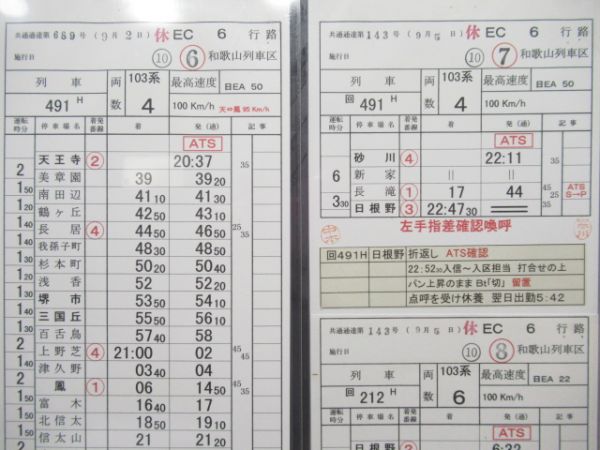 共通通達第689号 (9月2日) 休 EC 6 行路
施行日 ⑩ ⑥ 和歌山列車区
列車 両数 103系 最高速度 BEA 50
491H 4 100 Km/h 天⇔鳳 95 Km/h
運転時分 停車場名 着発番線 着 発(通) 記事
ATS
天王寺 ② 20:37 35
2 美章園 39 39 20
1 50 南田辺 41 10 41 30
1 20 鶴ヶ丘 42 50 43 10
長居 ④ 44 30 44 50 25 35
我孫子町 46 30 46 50
杉本町 50 20 50 40
浅香 52 52 20
堺市 53 50 54 10
三国丘 55 50 56 10
百舌鳥 57 40 58
上野芝 ④ 21:00 02 45 45
津久野 03 40 04
鳳 ① 06 14 50 45 35
富木 16 40 17
北信太 18 50 19 10
信太山 21 21 20
共通通達第143号 (9月5日) 休 EC 6 行路
施行日 ⑩ ⑦ 和歌山列車区
列車 両数 103系 最高速度 BEA 50
回 491H 4 100 Km/h
運転時分 停車場名 着発番線 着 発(通) 記事
ATS
砂川 ④ 22:11 35
6 新家 || ||
長滝 ① 17 44 45 25 ATS S→P
3 30 日根野 ③ 22:47 30 35
左手指差確認喚呼
回491H 日根野 折返し ATS確認
22:52 30 入信~入区担当 打合せの上
パン上昇のまま Bt「切」 留置
点呼を受け休養 翌日出勤5:42
共通通達第143号 (9月5日) 休 EC 6 行路
施行日 ⑩ ⑧ 和歌山列車区
列車 両数 103系 最高速度 BEA 22
回 212H 6 100 Km/h
運転時分 停車場名 着発番線 着 発(通) 記事
ATS
日根野 ③ 6:22